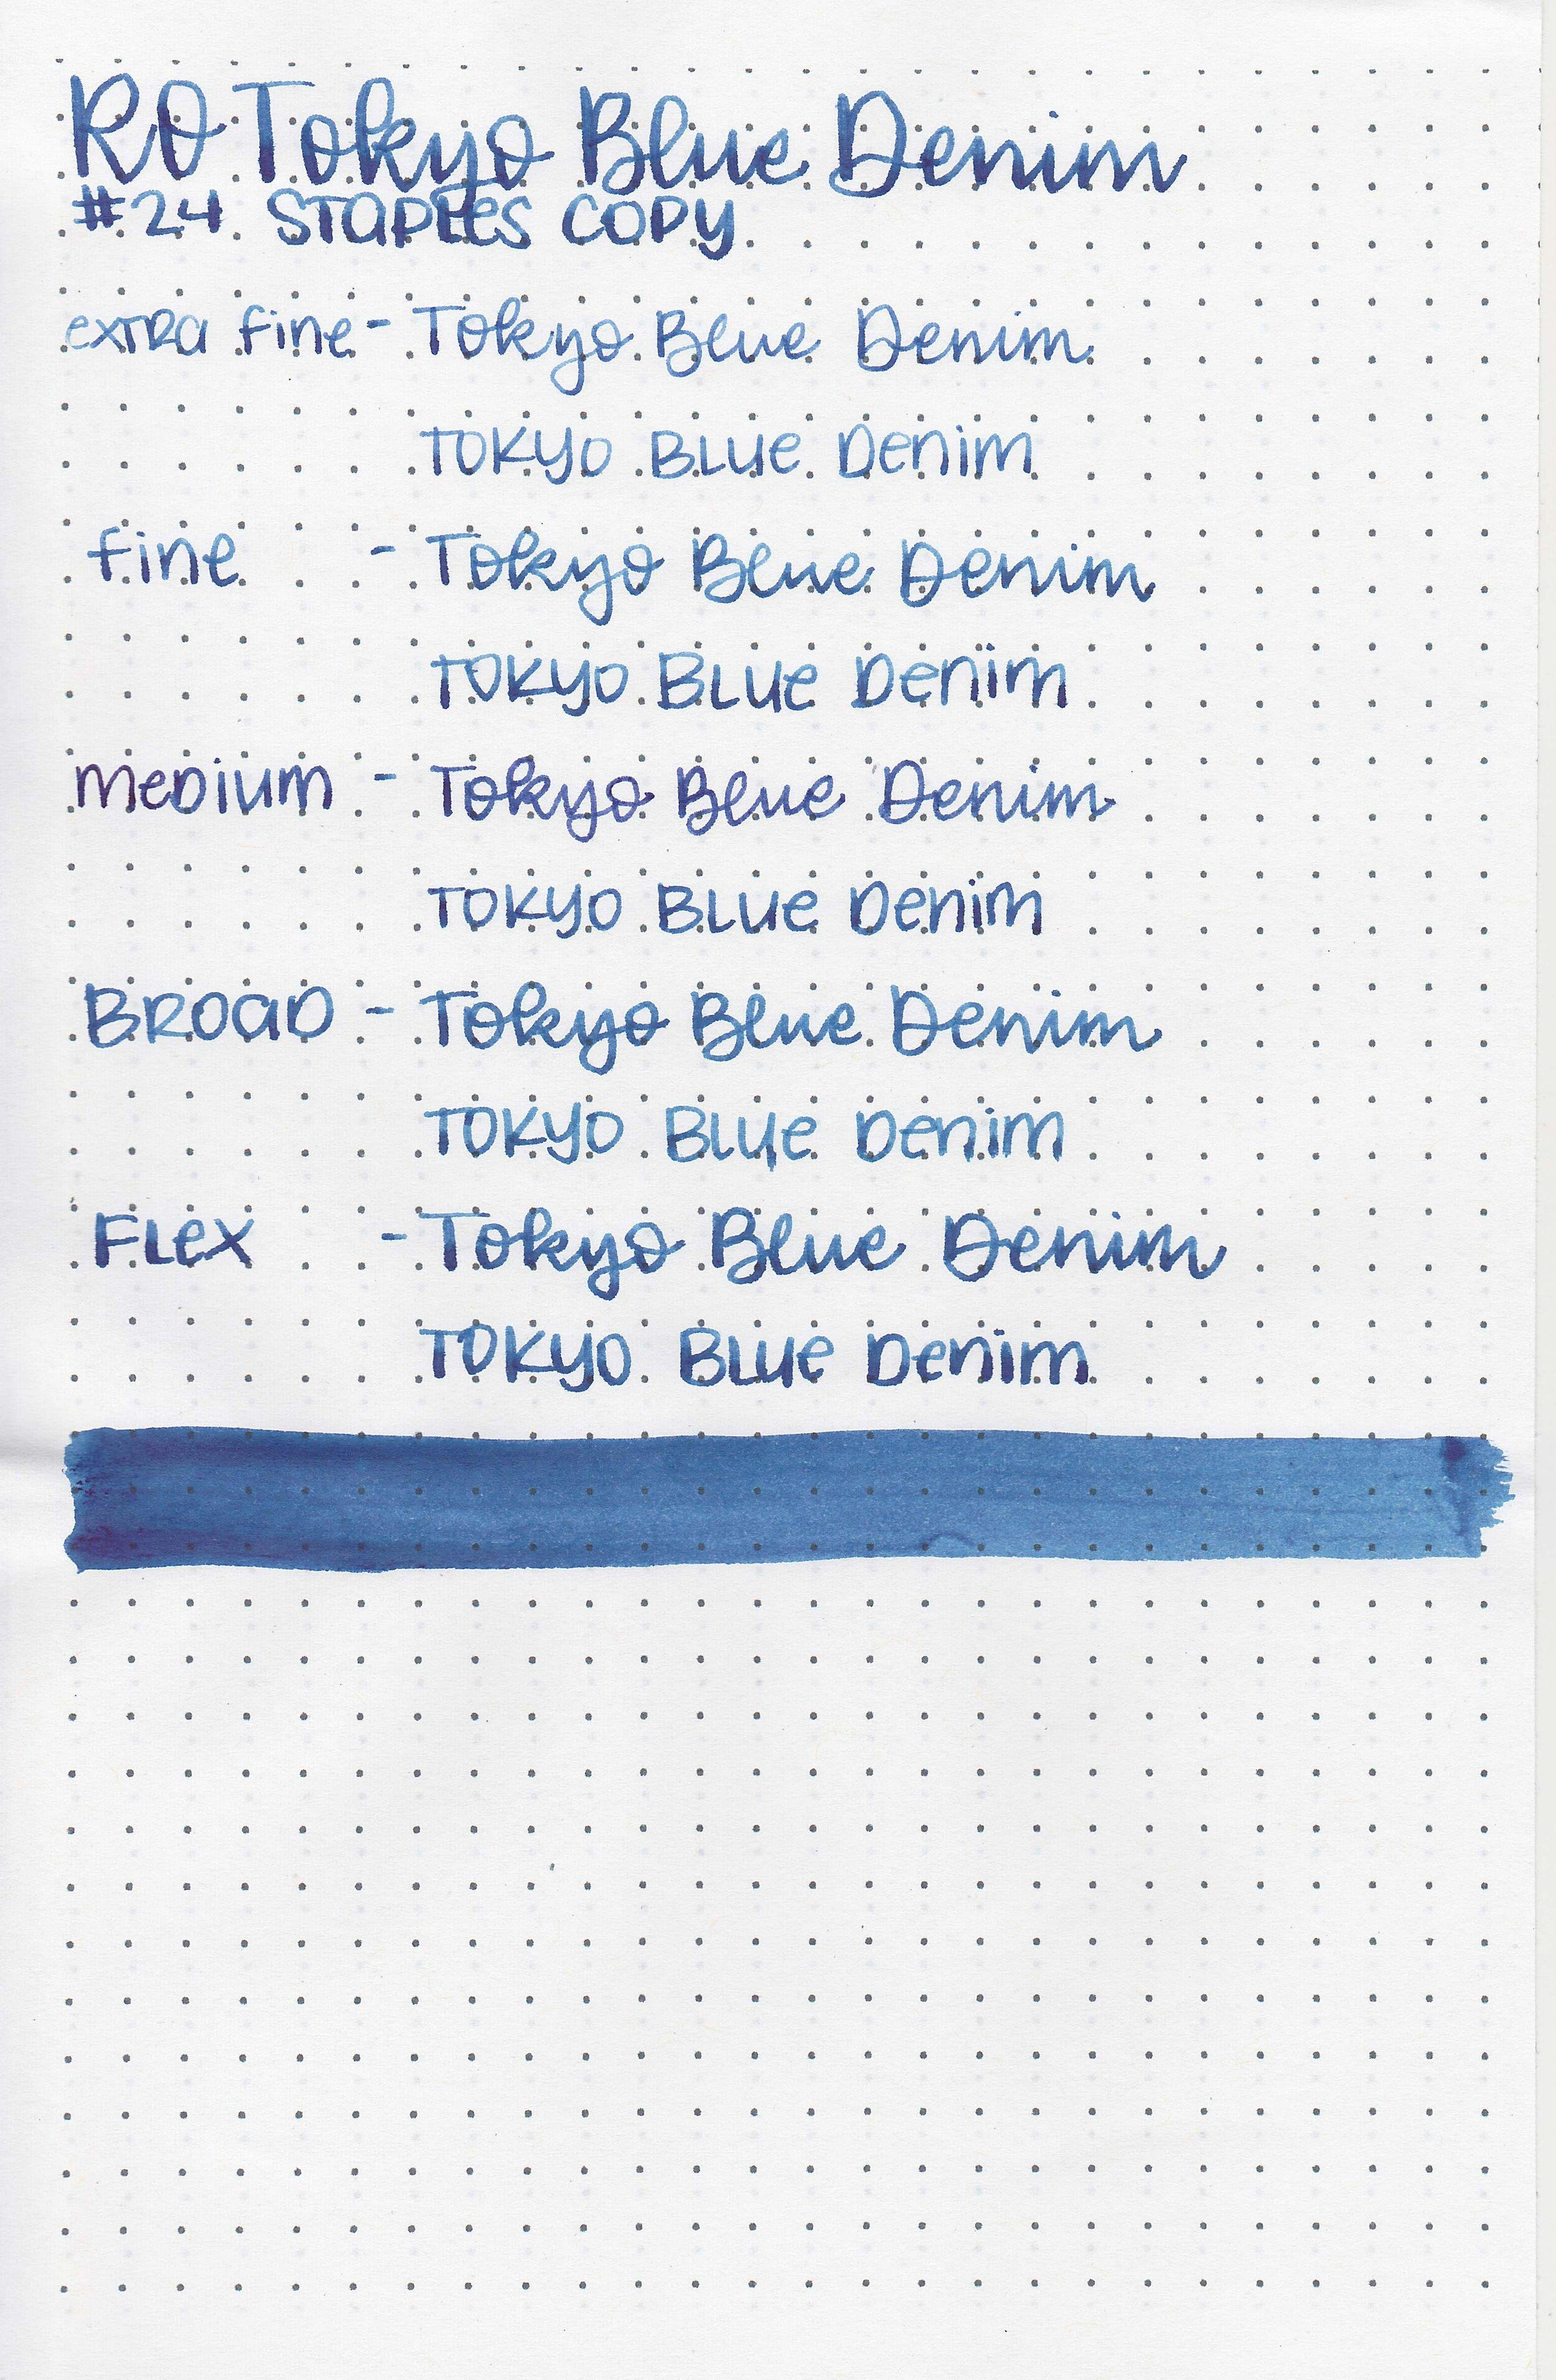 RO Tokyo Blue Denim
#24 STAPLES COPY
extra fine - Tokyo Blue Denim
TOKYO BLUE Denim
fine - Tokyo Blue Denim
TOKYO BLUE Denim
Medium - Tokyo Blue Denim
TOKYO BLUE Denim
BROAD - Tokyo Blue Denim
TOKYO BLUE Denim
FLex - Tokyo Blue Denim
TOKYO BLUE Denim